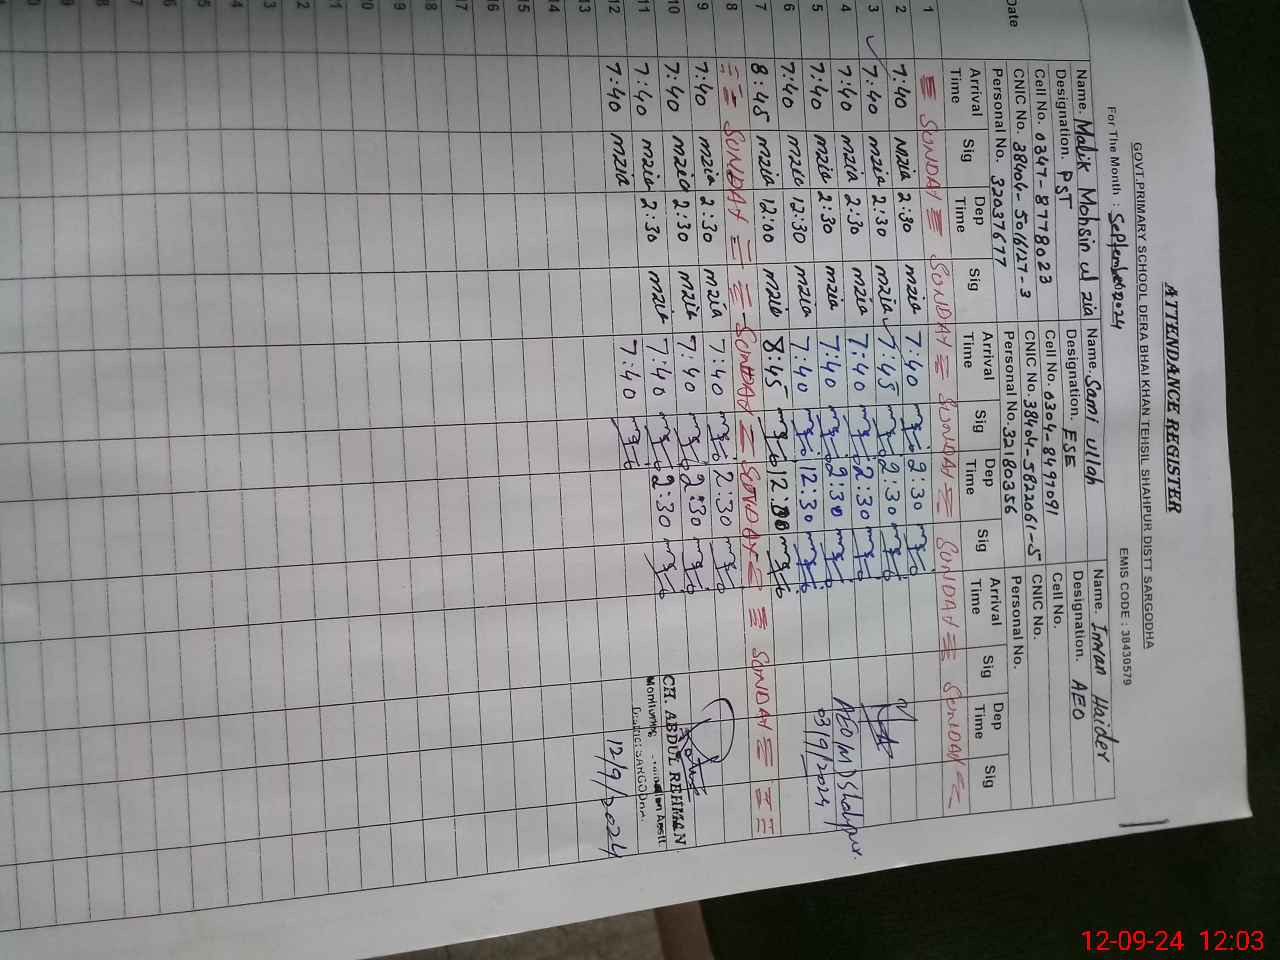 ATTENDANCE REGISTER
GOVT.PRIMARY SCHOOL DERA BHAI KHAN TEHSIL SHAHPUR DISTT SARGODHA
For The Month : September2024 EMIS CODE : 38430579
Name. Malik Mohsin ul zia Name. Sami Ullah Name. Imran Haider
Designation. PST Designation. ESE Designation. AEO
Cell No. 0347-8778023 Cell No. 0304-8497091 Cell No.
CNIC No. 38404-5016127-3 CNIC No. 38404-5822061-5 CNIC No.
Personal No. 32037677 Personal No. 32180356 Personal No.
Date Arrival Time Sig Dep Time Sig Arrival Time Sig Dep Time Sig Arrival Time Sig Dep Time Sig
1 SONDAY SONDAY SONDAY SONDAY SONDAY
2 7:40 mzia 2:30 mzia 7:40 2:30
3 7:40 mzia 2:30 mzia 7:45 2:30
4 7:40 mzia 2:30 mzia 7:40 2:30
5 7:40 mzia 2:30 mzia 7:40 2:30 AEO(M) Shahpur.
03/9/2024
6 7:40 mzia 12:30 mzia 7:40 12:30
7 8:45 mzia 12:00 mzia 8:45
8 SONDAY SONDAY SONDAY SONDAY
9 7:40 mzia 2:30 mzia 7:40 2:30
10 7:40 mzia 2:30 mzia 7:40 2:30
11 7:40 mzia 2:30 mzia 7:40 2:30
12 7:40 mzia 7:40
CH. ABDUL REHMAN
Monitoring
District SARGODHA
12/9/2024
13
14
15
16
17
18
12-09-24 12:03